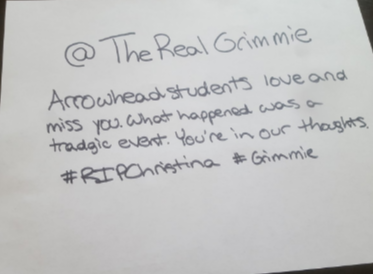 @TheRealGrimmie
Arrowhead students love and
miss you. What happened was a
tradgic event. You're in our thoughts.
#RIPChristina #Grimmie